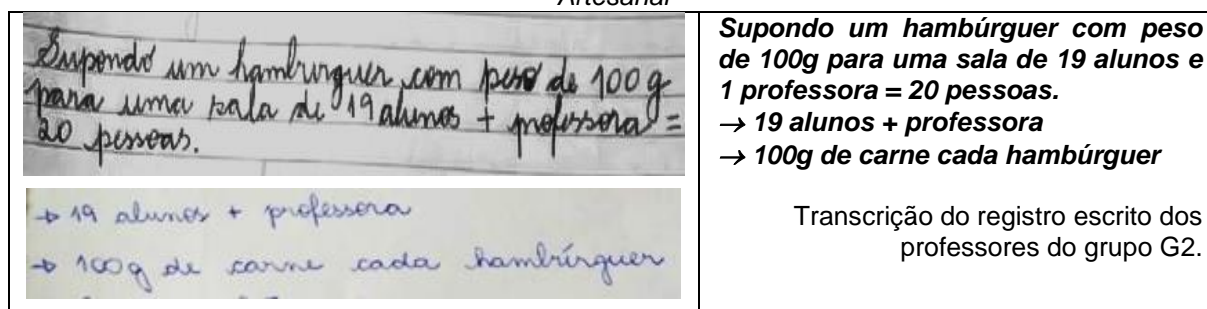 Artesanal
Supondo um hambúrguer com peso de 100g
para uma sala de 19 alunos + professora =
20 pessoas.
→ 19 alunos + professora
→ 100g de carne cada hambúrguer
Supondo um hambúrguer com peso
de 100g para uma sala de 19 alunos e
1 professora = 20 pessoas.
→ 19 alunos + professora
→ 100g de carne cada hambúrguer
Transcrição do registro escrito dos
professores do grupo G2.